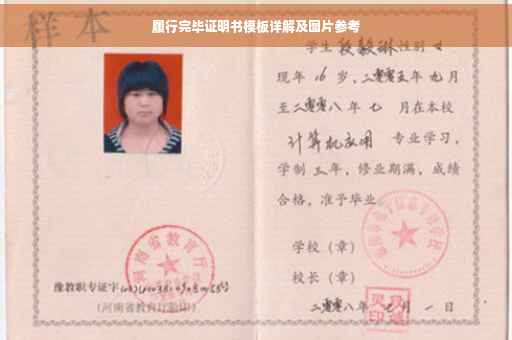 履行完毕证明书模板详解及图片参考
样本
学生 段毅琳 性别 女
现年 16 岁，二零零五年 九 月
至二零零八 年 七 月在本校
计算机应用 专业学习，
学制 三 年，修业期满，成绩
合格，准予毕业。
学校（章）
校长（章）
二零零八年 七 月 一 日
河南省教育厅
豫教职专证字
（河南省教育厅验印）